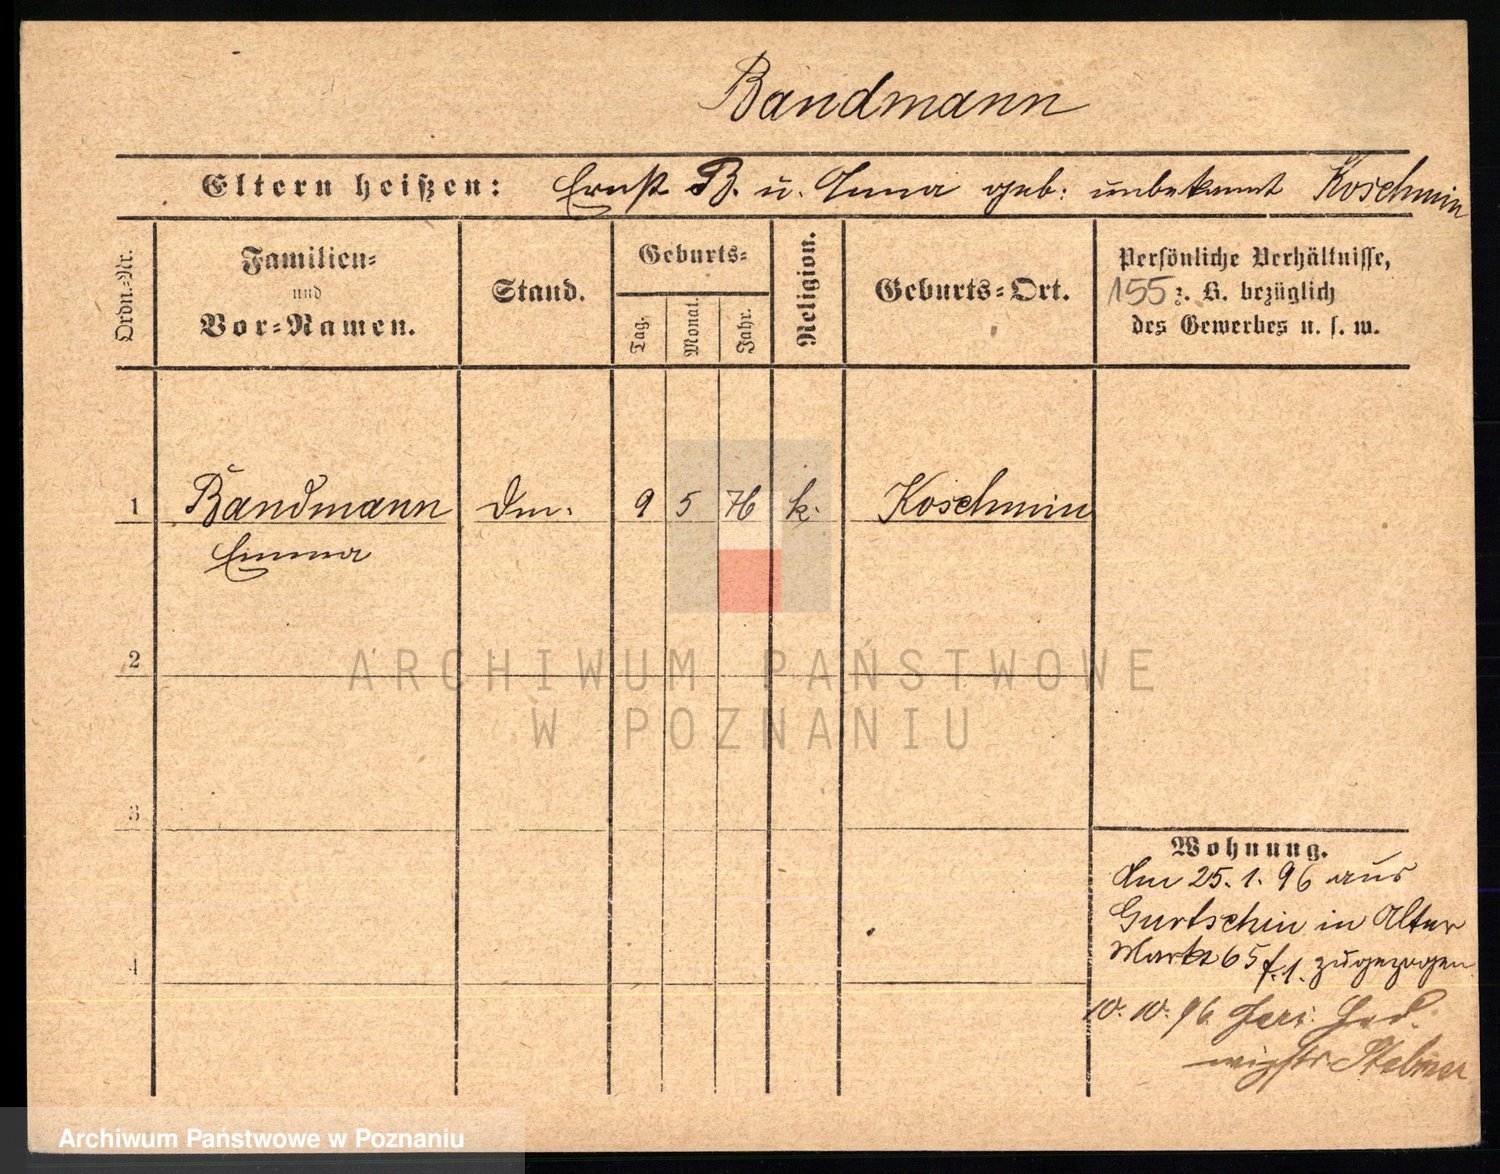 Bandmann
Eltern heißen: Ernst B. u. Anna geb: unbekannt Koschmin
Ordn.-Nr.
Familien-
und
Vor-Namen.
Stand.
Geburts-
Tag.
Monat.
Jahr.
Religion.
Geburts-Ort.
Persönliche Verhältnisse,
155 z. B. bezüglich
des Gewerbes u. s. w.
1 Bandmann Dm. 9 5 76 k. Koschmin
Emma
2
ARCHIWUM PAŃSTWOWE
W POZNANIU
3
Wohnung.
Am 25.1.96 aus
Gurtschin in Alter
Markt 65 f.1. zugezogen
4
10. 10. 96
Archiwum Państwowe w Poznaniu